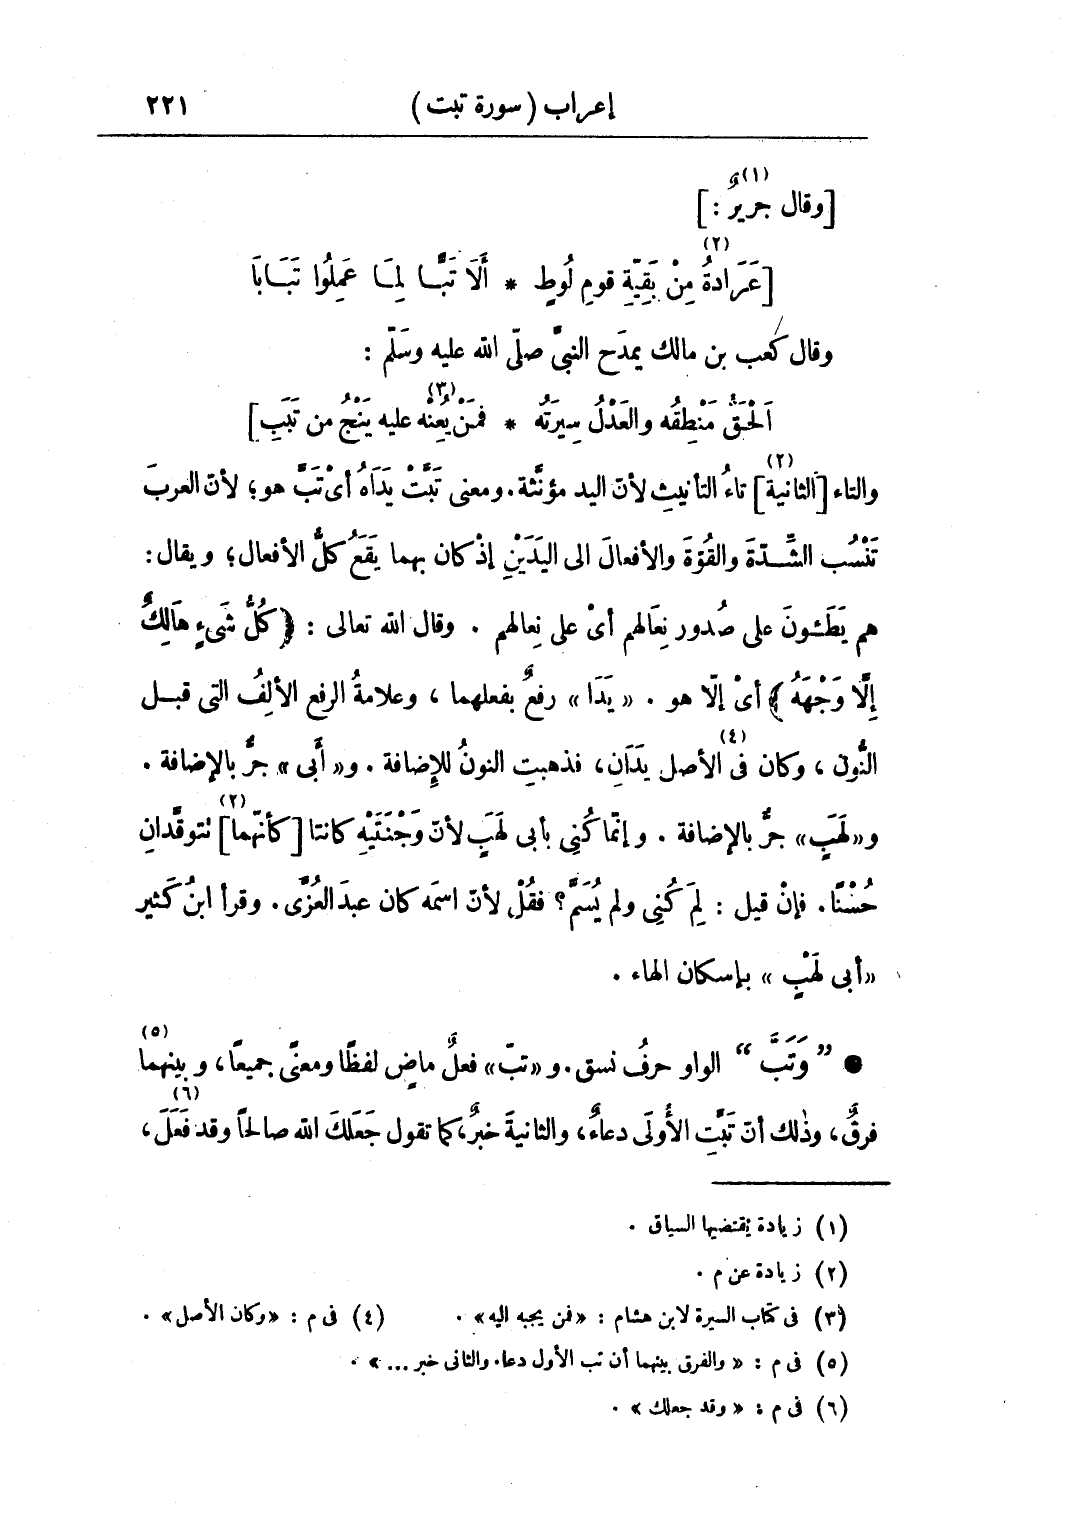 إعراب (سورة تبت) ٢٢١
[وقال جريرٌ (١) :]
[عَرَادةُ (٢) مِنْ بَقِيّةِ قومِ لُوطٍ * أَلَا تَبًّـا لِمَـا عَمِلُوا تَبَـابَا
وقال كعب بن مالك يمدَح النبيَّ صلّى الله عليه وسَلّم :
اَلْحَقُّ مَنْطِقُه والعَدْلُ سِيرَتُه * فمَنْ يُعِنْه (٣) عليه يَنْجُ من تَبَبِ]
والتاء [الثانية (٢)] تاءُ التأنيثِ لأنّ اليد مؤنَّثة. ومعنى تَبَّتْ يَدَاهُ أىْ تَبَّ هو؛ لأنّ العربَ
تَنْسُب الشِّـدّةَ والقُوّةَ والأفعالَ الى اليَدَيْنِ إذْ كان بهما يَقَعُ كلُّ الأفعال؛ ويقال:
هم يَطَـئونَ على صُدور نِعَالهم أىْ على نِعالهم . وقال الله تعالى : ﴿كُلُّ شَىءٍ هَالِكٌ
إِلَّا وَجْهَهُ﴾ أىْ إلّا هو . «يَدَا» رفعٌ بفعلهما ، وعلامةُ الرفع الألِفُ التى قبـل
النُّون ، وكان فى الأصل (٤) يَدَانِ، فذهبتِ النونُ للإِضافة . و«أَبى» جرٌّ بالإضافة .
و«لَهَبٍ» جرٌّ بالإضافة . وإنّما كُنِى بأبى لَهَبٍ لأنّ وَجْنَتَيْهِ كانتا [كأنّهما (٢)] تتوقّدانِ
حُسْنًا. فإنْ قيل : لِمَ كُنِى ولم يُسَمَّ؟ فقُلْ لأنّ اسمَه كان عبدَ العُزَّى. وقرأ ابنُ كَثير
«أبى لَهْبٍ» بإسكان الهاء .
● ”وَتَبَّ“ الواو حرفُ نسق. و«تبّ» فعلٌ ماضٍ لفظًا ومعنًى جميعًا، وبينهما (٥)
فرقٌ، وذلك أنّ تَبَّتِ الأُولَى دعاءٌ، والثانيةَ خبرٌ، كما تقول جَعَلكَ الله صالحًا وقد فَعَلَ (٦)،
(١) زيادة يقتضيها السياق .
(٢) زيادة عن م .
(٣) فى كتاب السيرة لابن هشام : «فمن يجبه اليه» . (٤) فى م : «وكان الأصل» .
(٥) فى م : «والفرق بينهما أن تب الأول دعاء والثانى خبر ...» .
(٦) فى م : «وقد جعلك» .